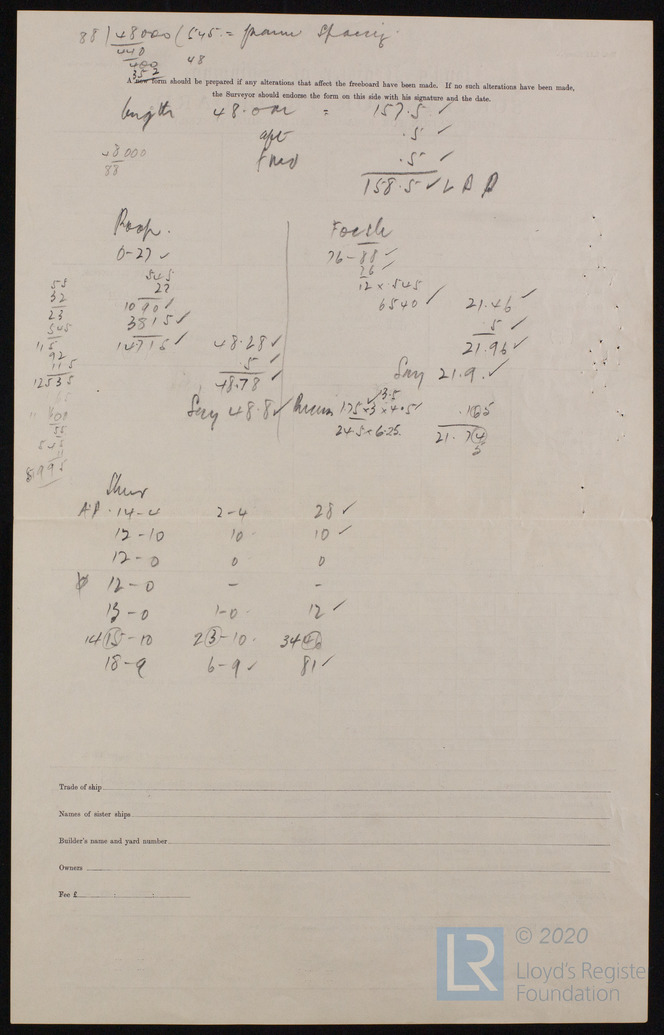 88 ) 48000 ( 545. = frame spacing.
440
400
352
48
A new form should be prepared if any alterations that affect the freeboard have been made. If no such alterations have been made,
the Surveyor should endorse the form on this side with his signature and the date.
length 48.0m = 157.5 ✓
aft .5 ✓
48000
88
Fwd .5 ✓
158.5 ✓ L B P
Poop.
0-27 ✓
545
27
1090 ✓
3815 ✓
14715 ✓
48.28 ✓
.5 ✓
48.78 ✓
Say 48.8 ✓
55
32
23
545
115
92
115
12535
55
545
Focsle
76-88 ✓
76 ✓
12 x .545
6540 ✓ 21.46 ✓
.5 ✓
21.96 ✓
Say 21.9. ✓
13.5
175 x 3 x 4.05 ✓ .165
24.5 x 6.25. 21.74
5
Sheer
AP. 14-4 2-4 28 ✓
12-10 10 10 ✓
12-0 0 0
12-0 - -
13-0 1-0. 12 ✓
14 15-10 2 3-10. 34 46
18-9 6-9 ✓ 81 ✓
Trade of ship
Names of sister ships
Builder's name and yard number
Owners
Fee £ : :
LR © 2020
Lloyd's Register
Foundation